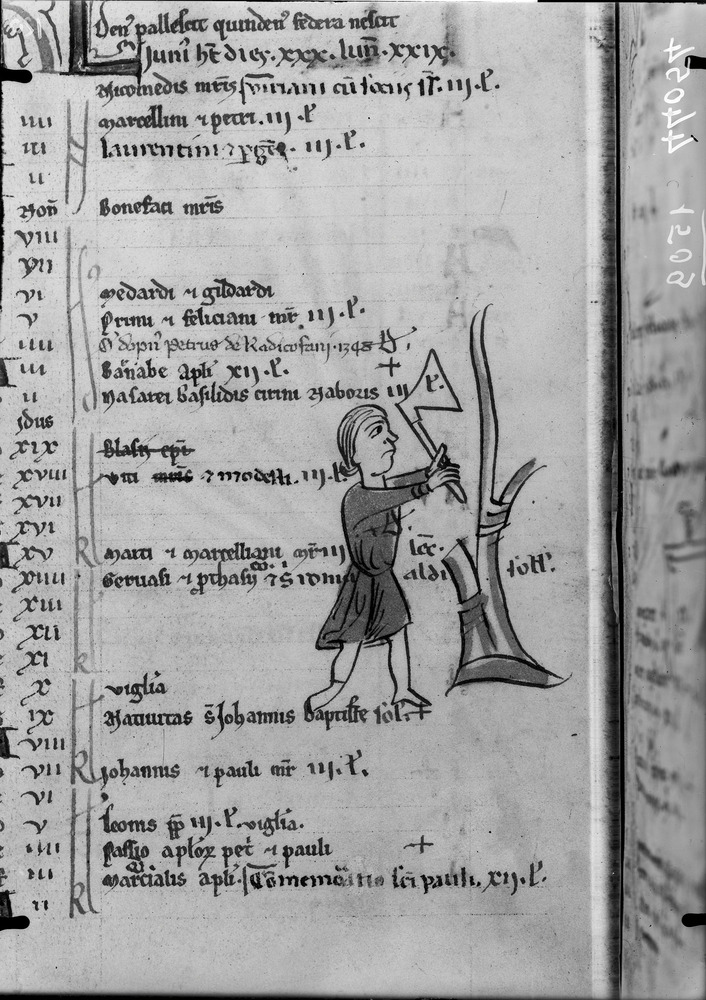 Den᷒ pallescit quinden᷒ federa nescit
Juni᷒ ht dies. xxx. lun̄. xxix.
Nicomedis mr̄is cū sociis iii. l.
iiii marcellini ⁊ petri. iii. l
iii laurentini ⁊ iii. l.
ii
Non̄ Bonefaci mr̄is
viii
vii
vi medardi ⁊ gildardi
v Primi ⁊ feliciani mr̄. iii. l.
iiii O dopn᷒ Petrus de Radicofani. 1348
iii Barnabe apli xii. l. +
ii Nasarei basilidis cirini Naboris iii l.
Idus
xix Blasii epi
xviii viti mr̄is ⁊ modesti. iii. l.
xvii
xvi
xv marci ⁊ marcelliani mr̄ iii sc̄e.
xiiii Gervasi ⁊ prothasii ⁊ S aldi
xiii
xii
xi
x viglia
ix Nativitas s̄ Johannis baptiste sol. +
viii
vii Johannis ⁊ pauli mr̄ iii. l.
vi
v leonis pp iii. l. viglia.
iiii Passio aplor̄ pet ⁊ pauli +
iii marcialis apli. Comemoratio sc̄i pauli. xii. l.
ii
44054
8051